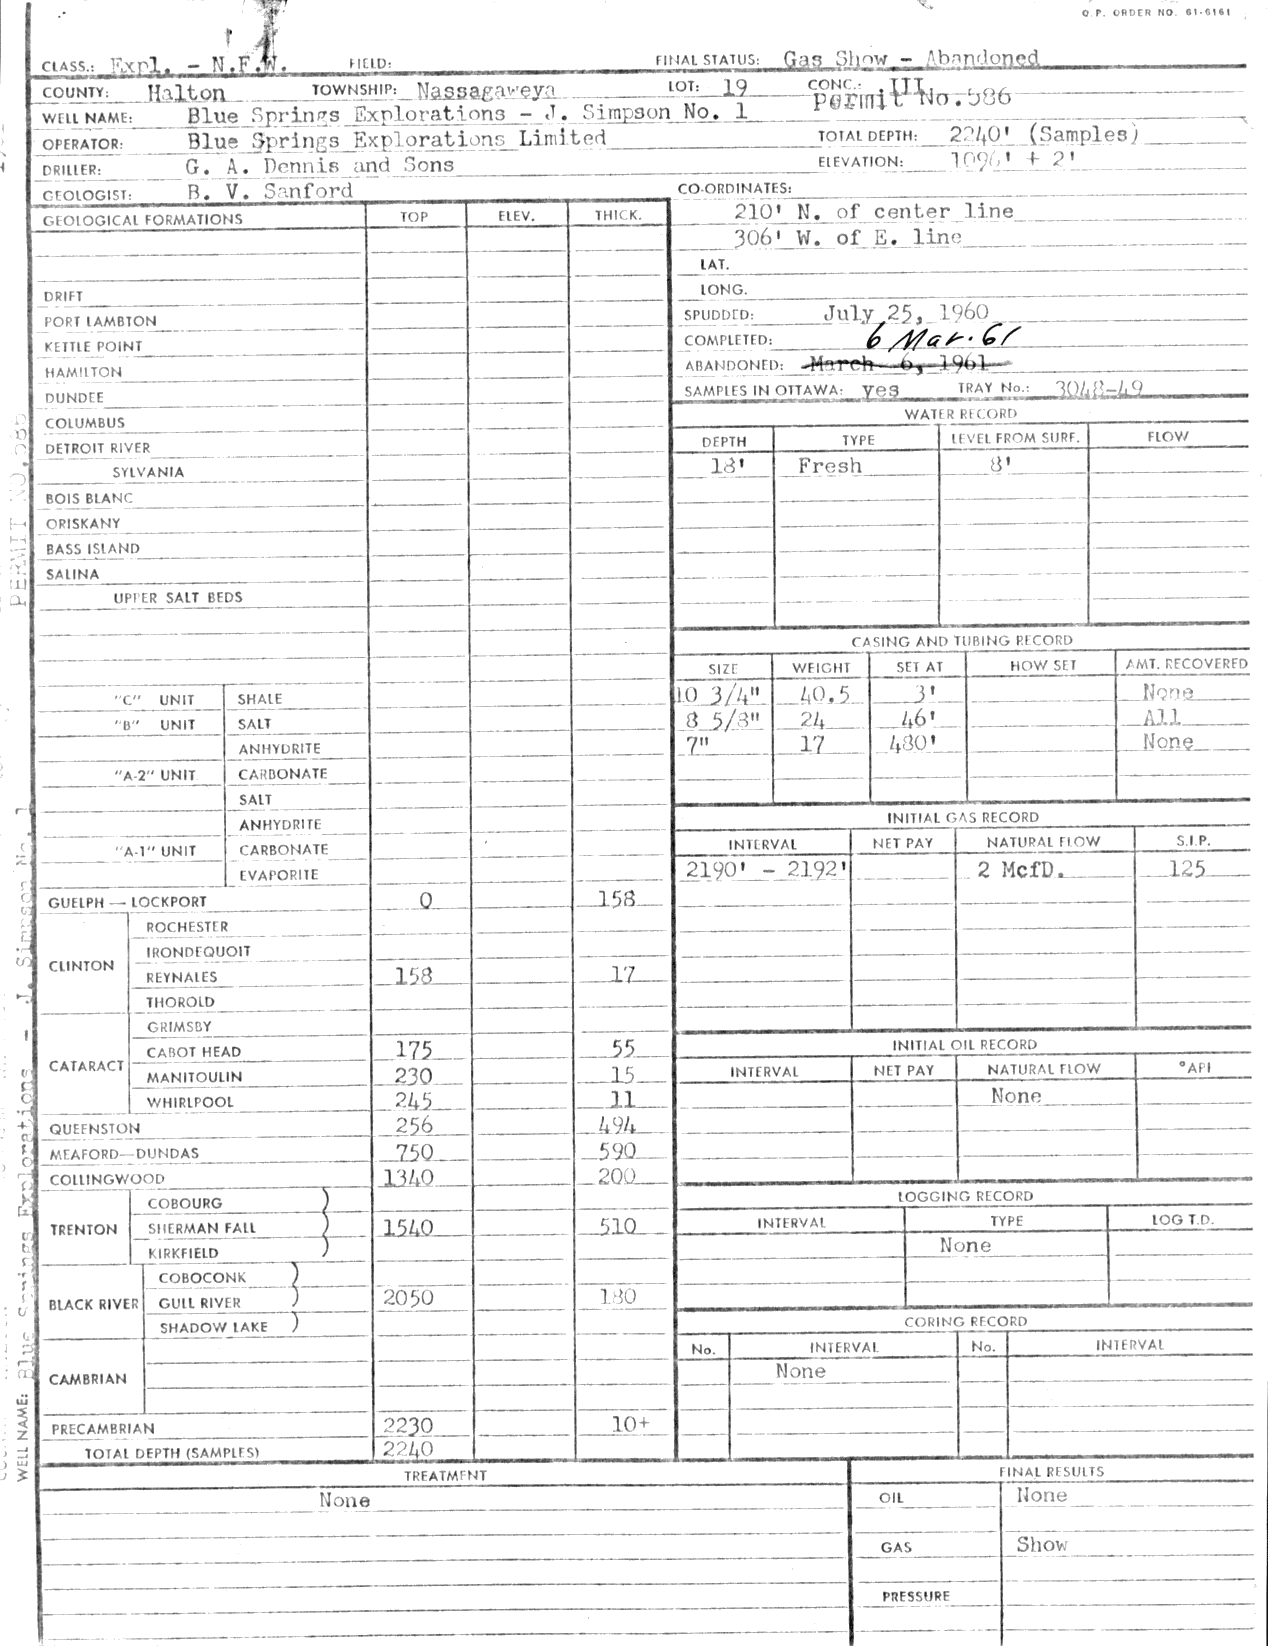 O.P. ORDER NO. 61-6161
CLASS.: Expl. - N.F.W. FIELD: FINAL STATUS: Gas Show - Abandoned
COUNTY: Halton TOWNSHIP: Nassagaweya LOT: 19 CONC.: III
Permit No. 586
WELL NAME: Blue Springs Explorations - J. Simpson No. 1
OPERATOR: Blue Springs Explorations Limited TOTAL DEPTH: 2240' (Samples)
DRILLER: G. A. Dennis and Sons ELEVATION: 1096' + 2'
GEOLOGIST: B. V. Sanford
CO-ORDINATES:
210' N. of center line
306' W. of E. line
LAT.
LONG.
SPUDDED: July 25, 1960
COMPLETED: 6 Mar. 61
ABANDONED: March 6, 1961
SAMPLES IN OTTAWA: yes TRAY No.: 3048-49
GEOLOGICAL FORMATIONS TOP ELEV. THICK.
DRIFT
PORT LAMBTON
KETTLE POINT
HAMILTON
DUNDEE
COLUMBUS
DETROIT RIVER
SYLVANIA
BOIS BLANC
ORISKANY
BASS ISLAND
SALINA
UPPER SALT BEDS
"C" UNIT SHALE
"B" UNIT SALT
ANHYDRITE
"A-2" UNIT CARBONATE
SALT
ANHYDRITE
"A-1" UNIT CARBONATE
EVAPORITE
GUELPH — LOCKPORT 0 158
CLINTON
ROCHESTER
IRONDEQUOIT
REYNALES 158 17
THOROLD
CATARACT
GRIMSBY
CABOT HEAD 175 55
MANITOULIN 230 15
WHIRLPOOL 245 11
QUEENSTON 256 494
MEAFORD—DUNDAS 750 590
COLLINGWOOD 1340 200
TRENTON
COBOURG )
SHERMAN FALL ) 1540 510
KIRKFIELD )
BLACK RIVER
COBOCONK )
GULL RIVER ) 2050 180
SHADOW LAKE )
CAMBRIAN
PRECAMBRIAN 2230 10+
TOTAL DEPTH (SAMPLES) 2240
WATER RECORD
DEPTH TYPE LEVEL FROM SURF. FLOW
18' Fresh 8'
CASING AND TUBING RECORD
SIZE WEIGHT SET AT HOW SET AMT. RECOVERED
10 3/4" 40.5 3' None
8 5/8" 24 46' All
7" 17 480' None
INITIAL GAS RECORD
INTERVAL NET PAY NATURAL FLOW S.I.P.
2190' - 2192' 2 McfD. 125
INITIAL OIL RECORD
INTERVAL NET PAY NATURAL FLOW °API
None
LOGGING RECORD
INTERVAL TYPE LOG T.D.
None
CORING RECORD
No. INTERVAL No. INTERVAL
None
TREATMENT
None
FINAL RESULTS
OIL None
GAS Show
PRESSURE
WELL NAME: Blue Springs Explorations - J. Simpson No. 1
PERMIT NO.